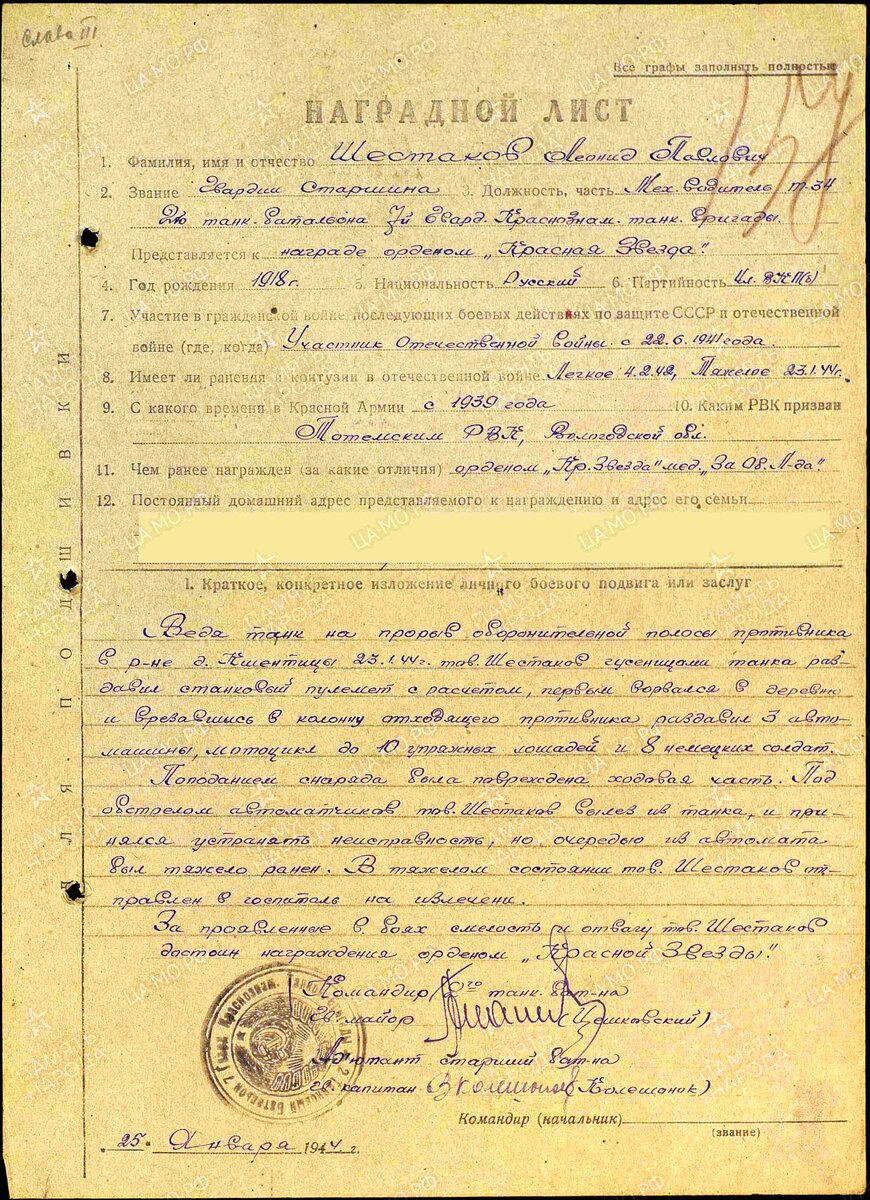 Слава III
Все графы заполнять полностью
НАГРАДНОЙ ЛИСТ
1. Фамилия, имя и отчество Шестаков Леонид Павлович
2. Звание Гвардии Старшина 3. Должность, часть Мех. водитель т-34
2го танк. батальона 7й Гвард. Краснознам. танк. бригады
Представляется к награде орденом „Красная Звезда"
4. Год рождения 1918 г. 5. Национальность Русский 6. Партийность Чл. ВКП(б)
7. Участие в гражданской войне, последующих боевых действиях по защите СССР и отечественной
войне (где, когда) Участник Отечественной войны с 22.6.1941 года.
8. Имеет ли ранения и контузии в отечественной войне Легкое 4.2.42, Тяжелое 23.1.44г.
9. С какого времени в Красной Армии с 1939 года 10. Каким РВК призван
Тотемским РВК, Вологодской обл.
11. Чем ранее награжден (за какие отличия) орденом „Кр. Звезда" мед. „За Об. Л-да"
12. Постоянный домашний адрес представляемого к награждению и адрес его семьи
I. Краткое, конкретное изложение личного боевого подвига или заслуг
Ведя танк на прорыв оборонительной полосы противника
в р-не д. Кшентицы 23.1.44г. тов. Шестаков гусеницами танка раз-
давил станковый пулемет с расчетом, первым ворвался в деревню
и врезавшись в колонну отходящего противника раздавил 3 авто-
машины, мотоцикл до 10 упряжных лошадей и 8 немецких солдат.
Поподанием снаряда была повреждена ходовая часть. Под
обстрелом автоматчиков тов. Шестаков вылез из танка, и при-
нялся устранять неисправность, но очередью из автомата
был тяжело ранен. В тяжелом состоянии тов. Шестаков от-
правлен в госпиталь на излечени.
За проявленные в боях смелость и отвагу тов. Шестаков
достоин награждения орденом „Красной Звезды"
Командир 2го танк. бат-на
Гв. майор (Цешковский)
Адютант старший бат-на
Гв. капитан (Колешонок)
Командир (начальник)
(звание)
„25" Января 1944 г.
ДЛЯ ПОДШИВКИ
ПАМЯТЬ НАРОДА
ЦА МО РФ